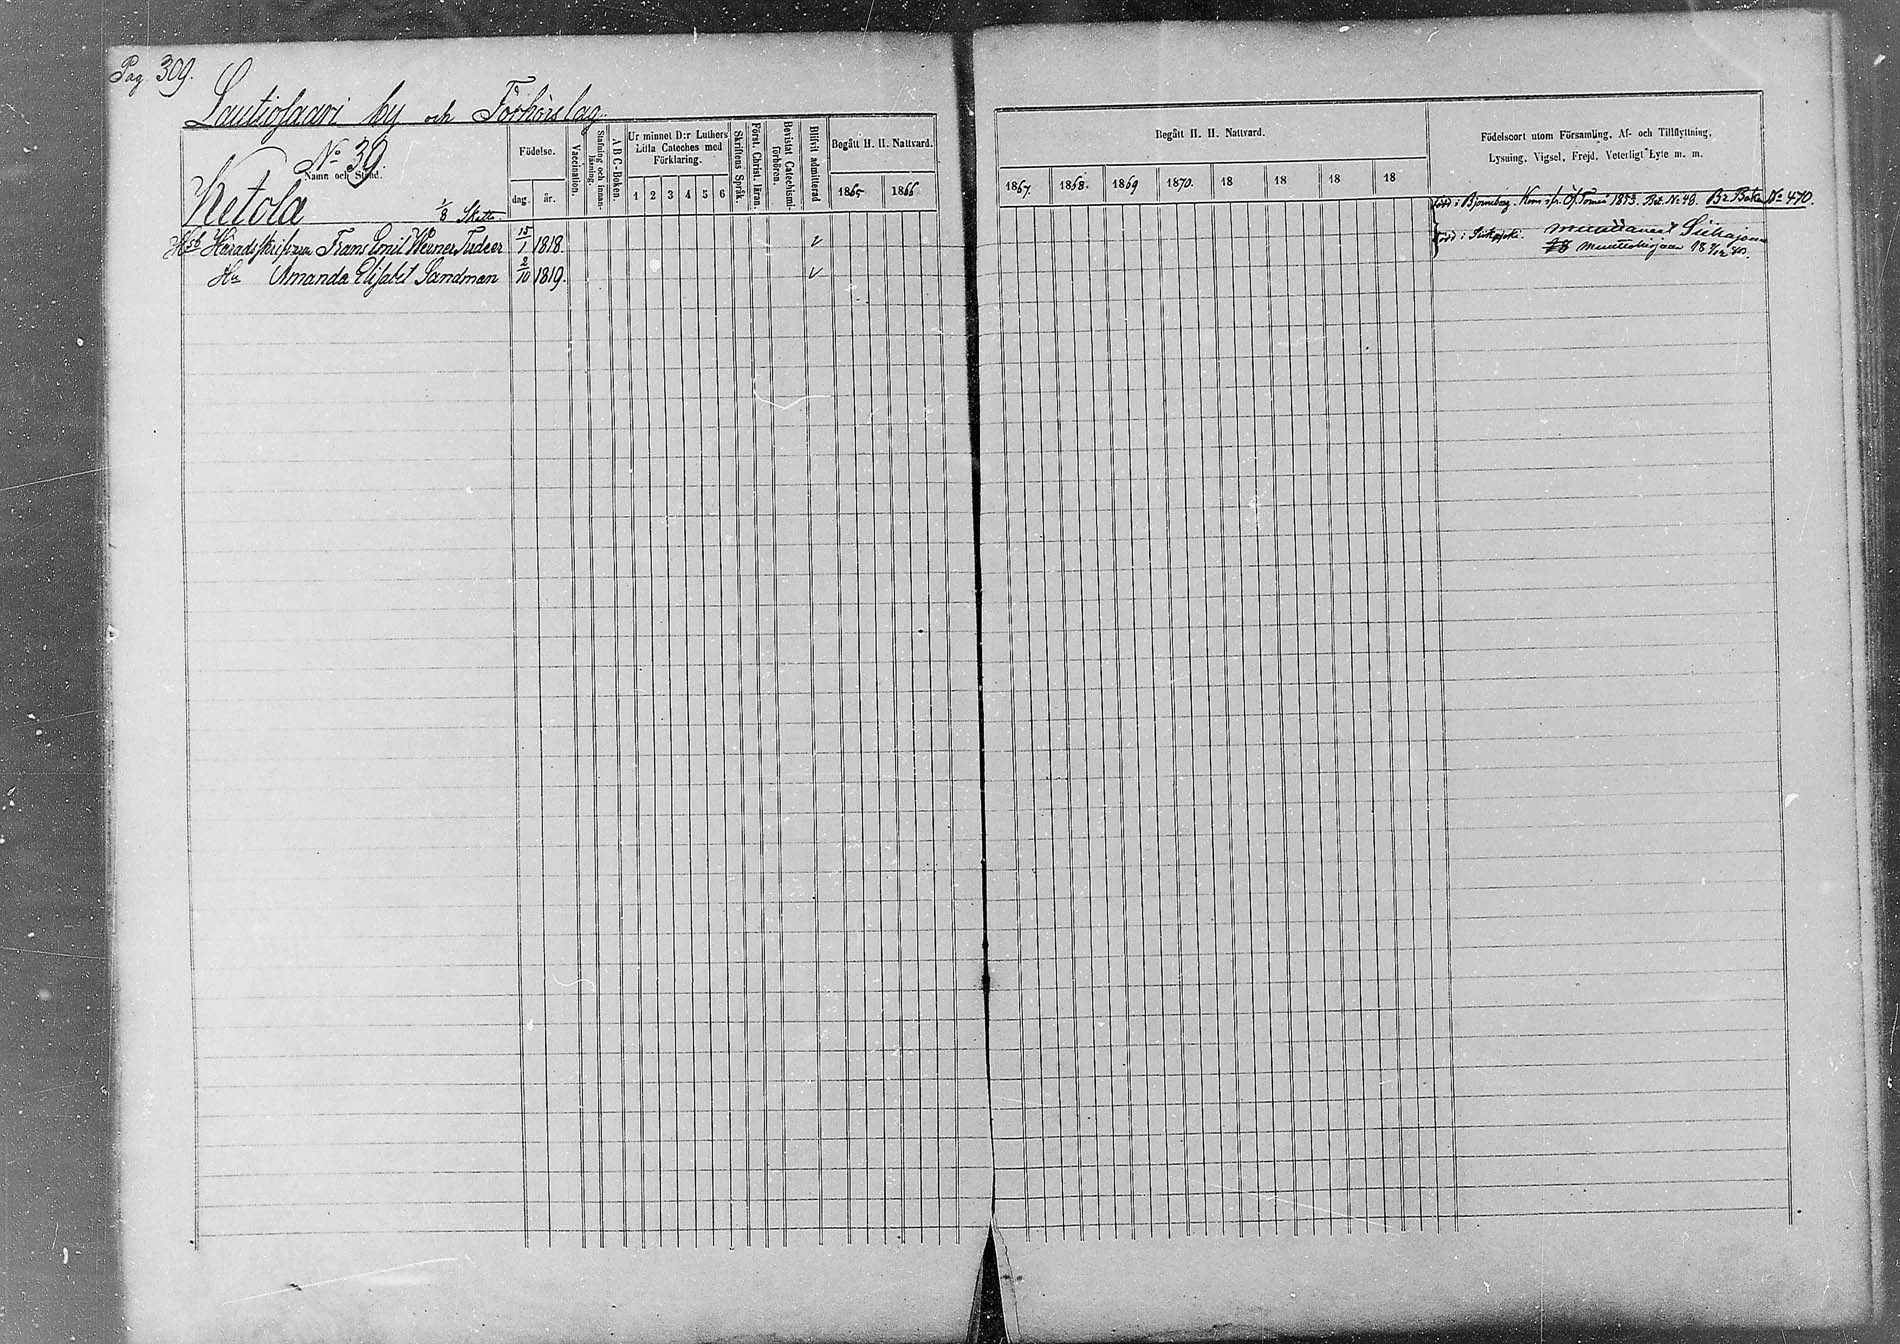 Pag. 309.
Lautiosaari by och Förhörslag.
No 39.
Namn och Stånd.
Ketola 1/8 Skatt
Födelse.
dag. år.
Vaccination.
Stafning och innanläsning.
A B C-Boken.
Ur minnet D:r Luthers Lilla Cateches med Förklaring.
1 2 3 4 5 6
Skriftens Språk.
Förest. Christ. läran.
Bevistat Catechismiförhören.
Blifvit admitterad
Begått H. H. Nattvard.
1865 1866
Hsb Häradsskrifvaren Frans Emil Werner Tudeer 15/1 1818.
Hu Amanda Elisabet Sandman 2/10 1819.
Begått H. H. Nattvard.
1867. 1868. 1869 1870. 18 18 18 18
Födelseort utom Församling, Af- och Tillflyttning,
Lysning, Vigsel, Frejd, Veterligt Lyte m. m.
född i Björneborg. Kom ifr. Öf. Torneå 1853. Bet. No 48. No 470.
född i Siikajoki